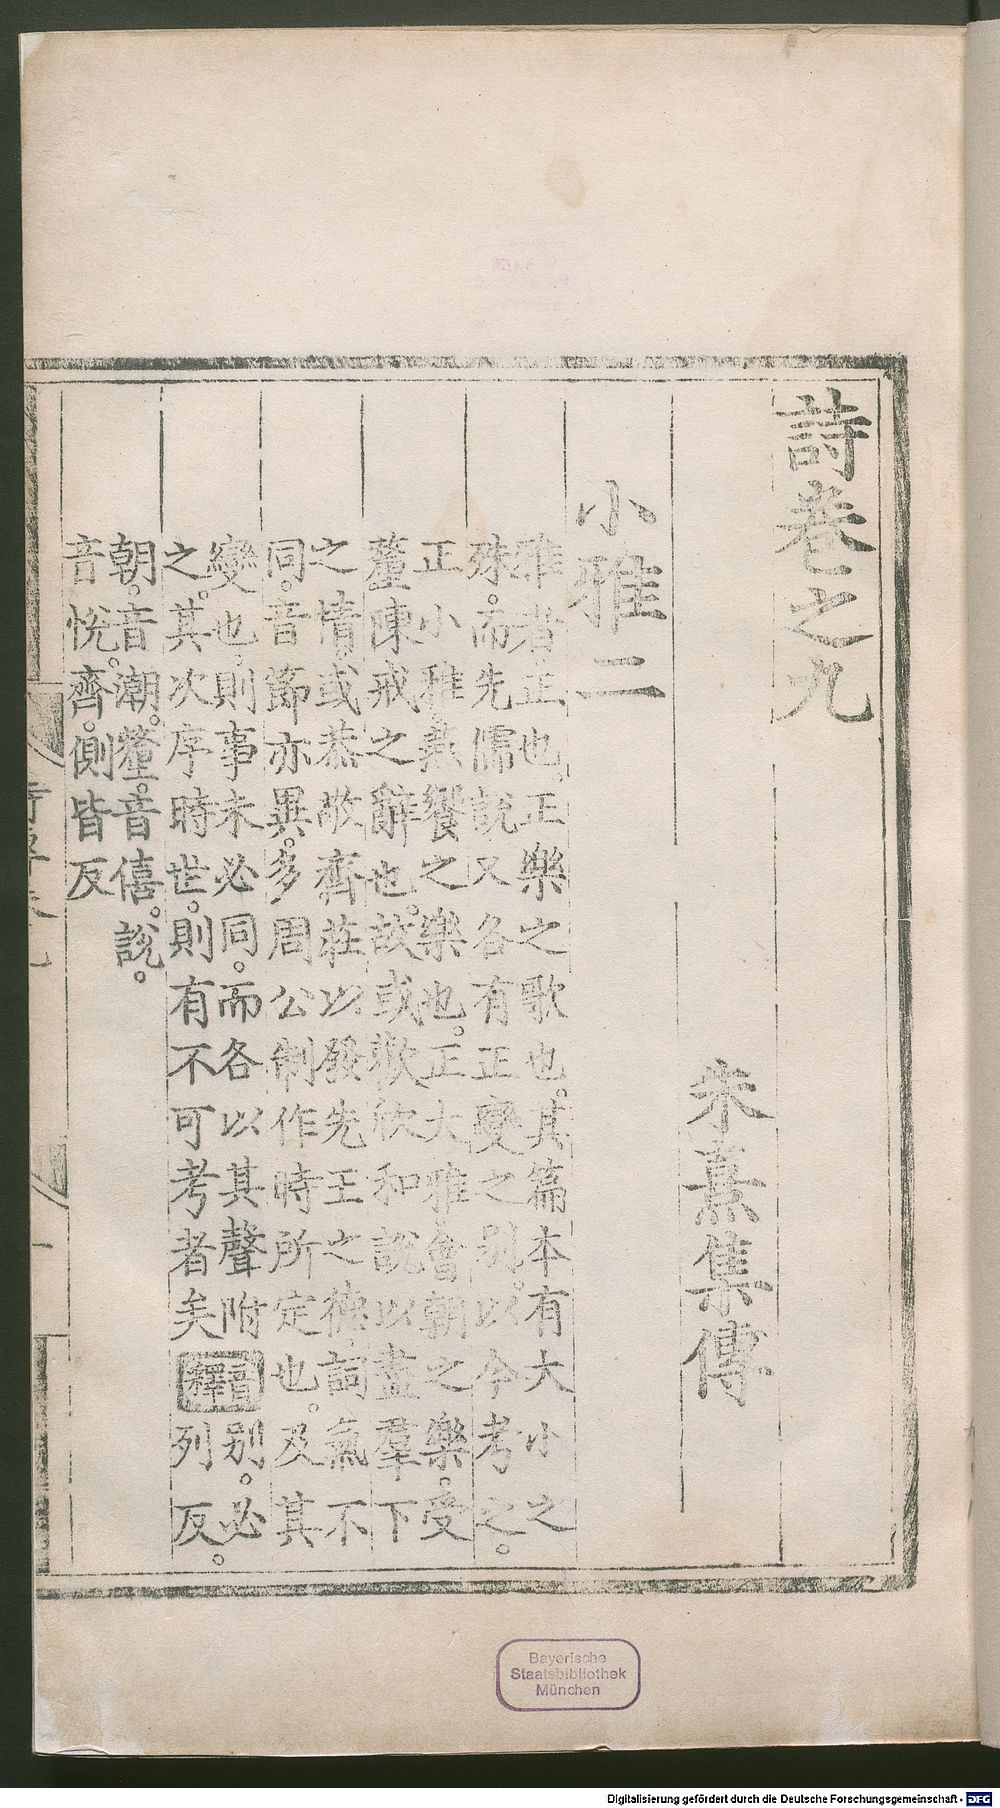 詩卷之九
朱熹集傳
小雅二
雅者。正也。正樂之歌也。其篇本有大小之
殊。而先儒說又各有正變之别。以今考之。
正小雅。燕饗之樂也。正大雅。會朝之樂。受
釐陳戒之辭也。故或歡欣和說。以盡羣下
之情。或恭敬齊莊。以發先王之德。詞氣不
同。音節亦異。多周公制作時所定也。及其
變也。則事未必同。而各以其聲附
之。其次序時世。則有不可考者矣
音釋
别。必
列反。
朝。音潮。釐。音僖。說。
音悅。齊。側皆反
Bayerische
Staatsbibliothek
München
Digitalisierung gefördert durch die Deutsche Forschungsgemeinschaft - DFG